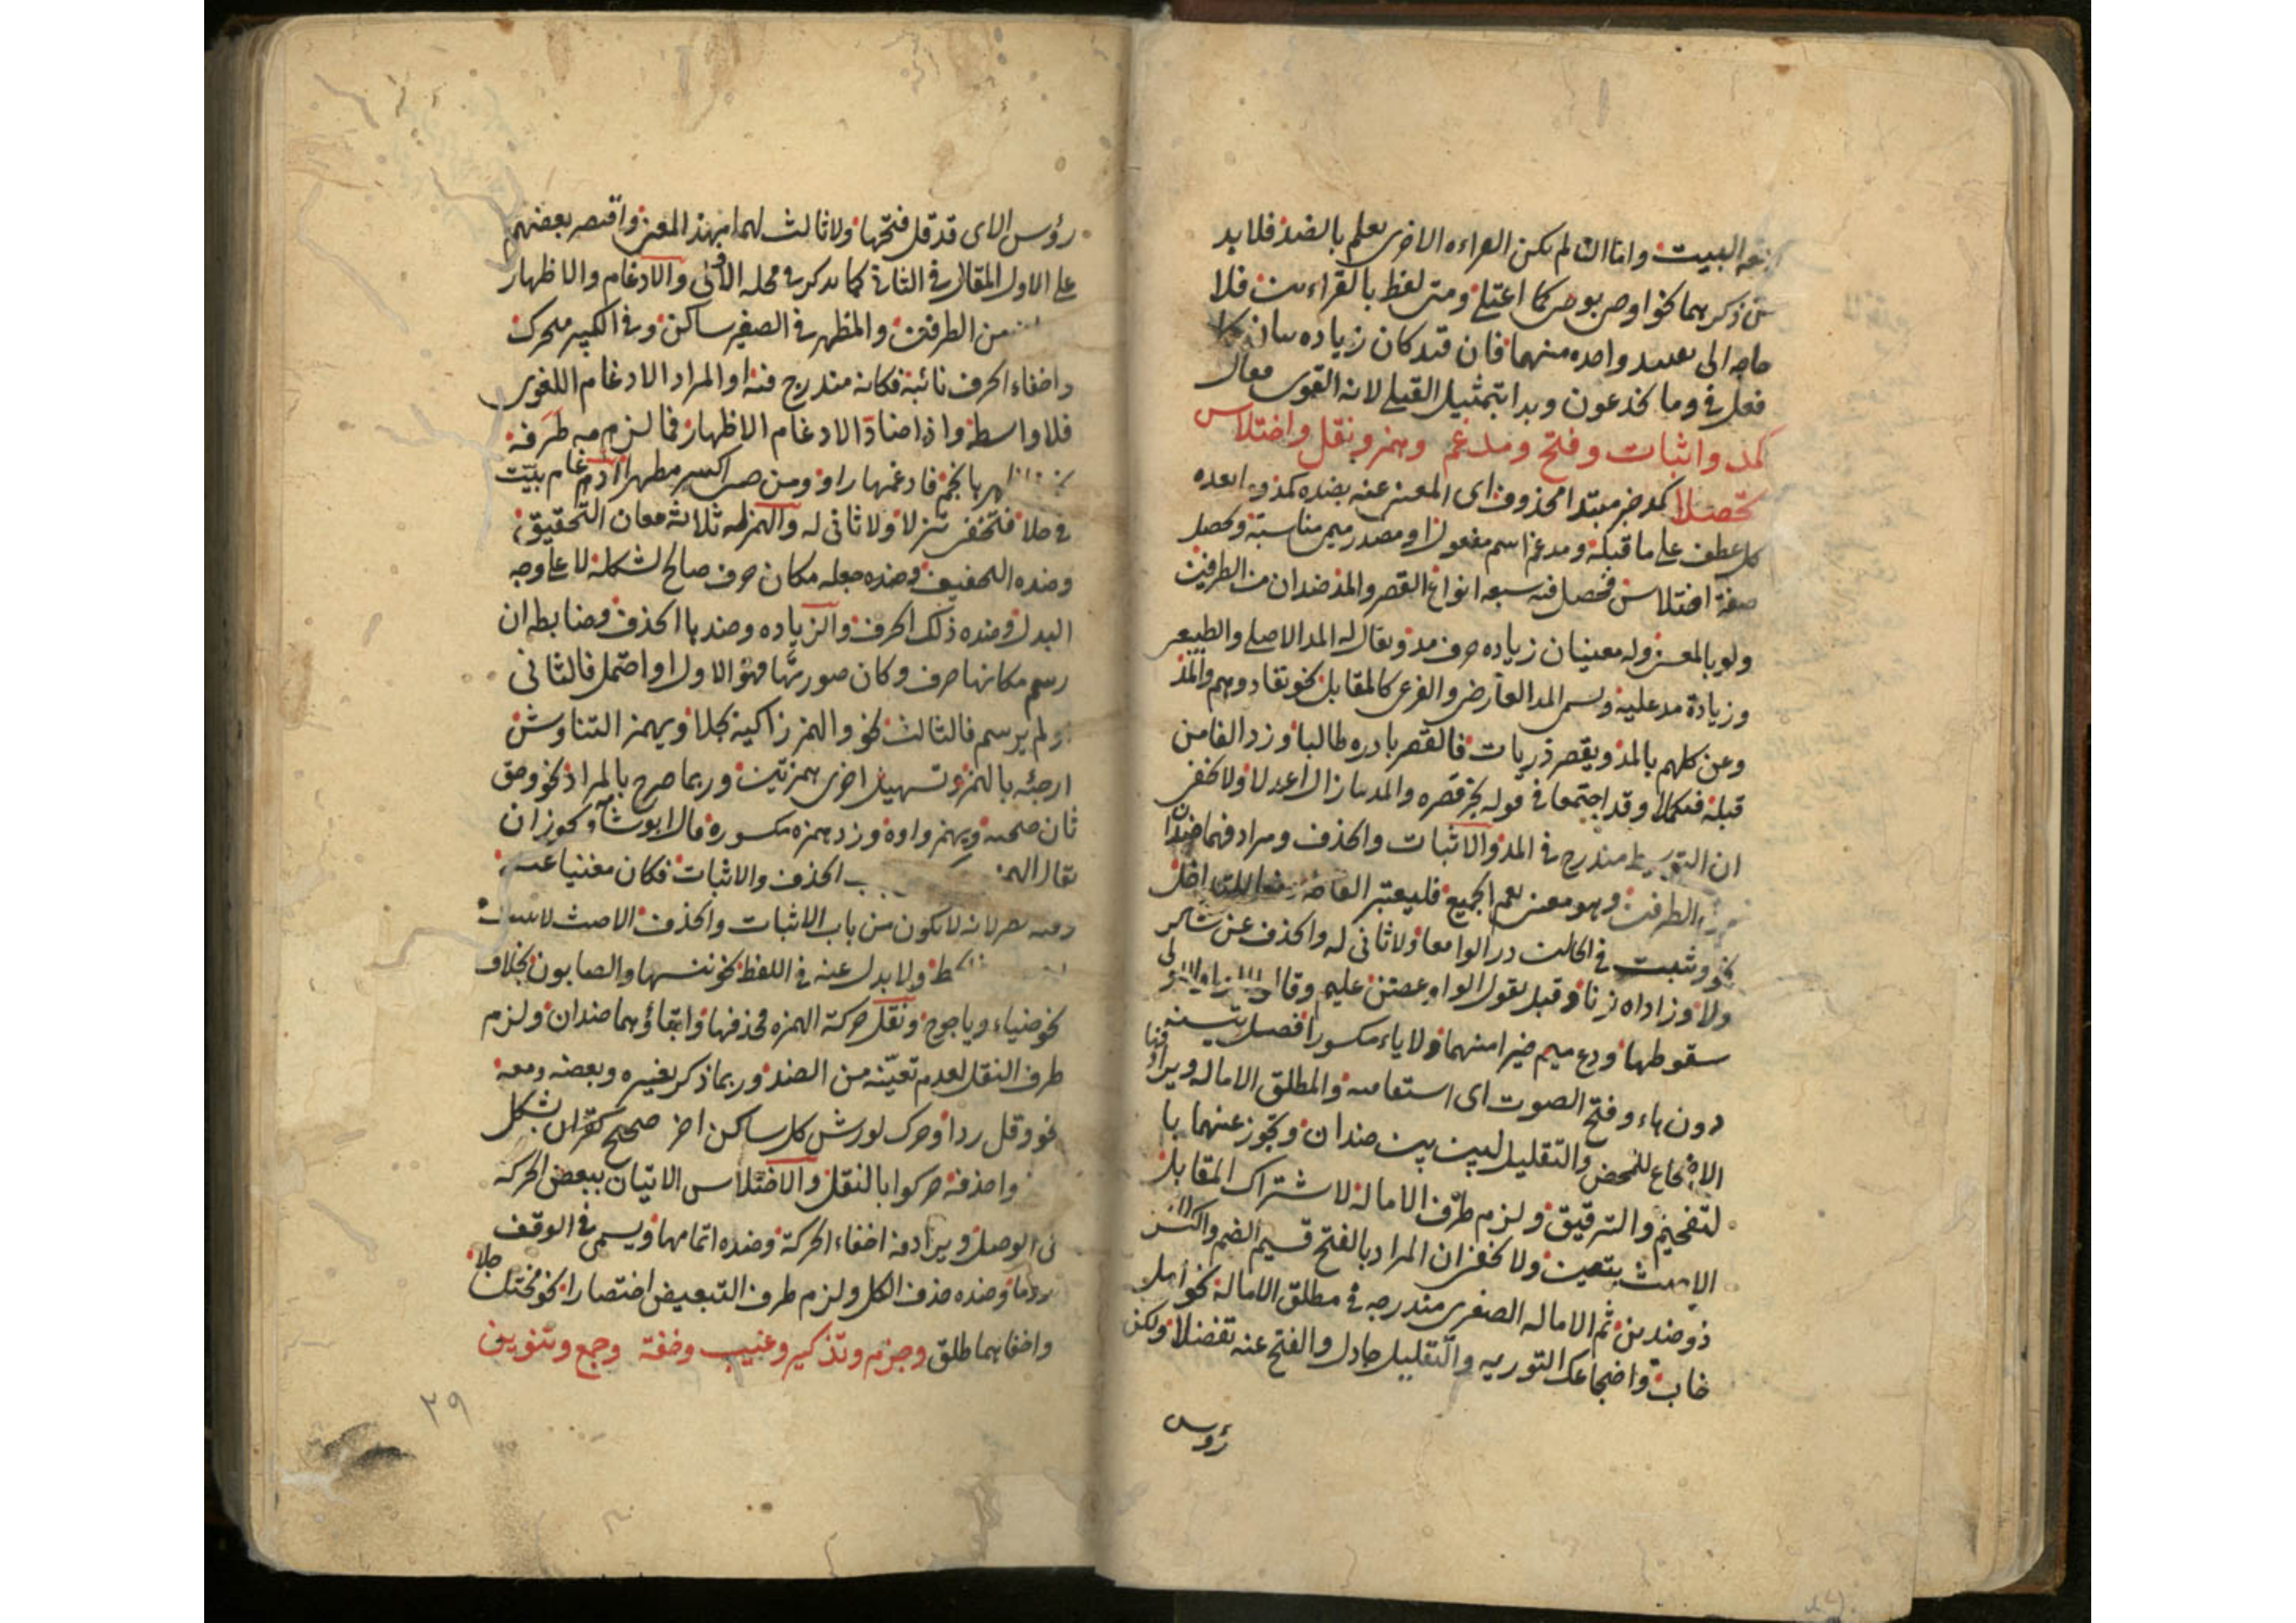 البيت واما ان لم يكن القراءه الاخرى تعلم بالضد فلا بد
من ذكرهما نحو اوصى بوصى كما اعتلى ومتى لفظ بالقراءتين فلا
حاجه الى تقييد واحده منهما فان قيد كان زياده بيان كما
فعل في وما يخدعون وبدا بتمثيل القبلي لانه القوى فقال
كمد واثبات وفتح ومدغم وهمز ونقل واختلاس
تحصلا كمد خبر مبتدا محذوف اى المغنى عنه بضده كمد وما بعده
كل عطف على ما قبله ومدغم اسم مفعول او مصدر ميمي مناسبة وتحصل
صفة اختلاس فحصل فيه سبعه انواع القصر والمد ضدان من الطرفين
ولو بالمعنى وله معنيان زياده حرف مد ويقال له المد الاصلي والطبيعي
وزيادة مد عليه ويسمى المد العارض والفرعى كالمقابل نحو تفادوهم والمد
وعن كلهم بالمد ويقصر ذريات فالقصر بادره طالبا وزد الفا من
قبله فيكملا وقد اجتمعا في قوله بخر قصره والمد ما زال اعدلا ولا يخفى
ان التوسط مندرج في المد والاثبات والحذف ومرادفهما ضدان
من الطرفين وهو معنى يعم الجميع فليعتبر
نحو وتثبت في الحالين درا لوامعا ولا ثاني له والحذف عن شاكر
ولا وزاداه نزنا وقبل يقول الواو غصن عليم
سقوطها ودع ميم خيرا منهما ولا ياء مكسورا فصل
دون هاء وفتح الصوت اى استقامته والمطلق الاماله ويرادفها
الاضجاع للمحض والتقليل لبين بين ضدان وتجوز عنهما با
لتفخيم والترقيق ولزم طرف الامالة لاشتراك المقابل
يتعين ولا يخفى ان المراد بالفتح قسيم الضم والكسر
ذو ضدين ثم الاماله الصغرى مندرجه في مطلق الامالة نحو امل
خاب واضجاعك التوريه والتقليل جادل والفتح عنه تفضلا ولكن
رؤس
رؤس الاى قد قل فتحها ولا ثالث لهما بهذا المعنى واقتصر بعضهم
على الاول المقال في الثاني كما يذكر في محله الاتى والادغام والاظهار
من الطرفين والمظهر في الصغير ساكن وفي الكبير متحرك
واخفاء الحرف نائبة فكانه مندرج فيه او المراد الادغام اللغوى
فلا واسطة واذا ضاد الادغام الاظهار فما لزم مه طرفه
فادغمها راو ومن حى اكسر مظهرا ادغام بيت
في حلا فتخفى تنزلا ولا ثاني له والهمز له ثلاثة معان التحقيق
وضده التخفيف وضده جعله مكان حرف صالح لشكله لا على وجه
البدل وضده ذلك الحرف والزياده وضدها الحذف وضابطه ان
رسم مكانها حرف وكان صورتها فهو الاول او احتمل فالثاني
ولم يرسم فالثالث نحو والهمز زاكيه كلا ويهمز التناوش
ارجئه بالهمز وتسهيل اخرى همزتين وربما صرح بالمراد نحو وحق
ثان صحبة ويهمز واوه وزد همزه مكسورة قال ابو شامه ويجوز ان
يقال الهمز الحذف والاثبات فكان مغنيا عنه
وفيه نظر لانه لا يكون من باب الاثبات والحذف الا حيث
ولا بدل عنه في اللفظ نحو ننسها والصابون بخلاف
نحو ضياء وياجوج ونقل حركة الهمزه فحذفها وابقاؤهما ضدان ولزم
طرف النقل لعدم تعينه من الضد وربما ذكر بغيره وبعضه ومعه
نحو ونقل ردا وحرك لورش كل ساكن اخر صحيح كقران بشكل
واحذفه حركوا بالنقل والاختلاس الاتيان ببعض الحركه
في الوصل ويرادفه اخفاء الحركة وضده اتمامها ويسمى في الوقف
روما وضده حذف الكل ولزم طرف التبعيض اختصارا نحو مختلس جلا
واخفاهما طلق وجزم وتذكير وغيب وخفة وجمع وتنوين
٣٩